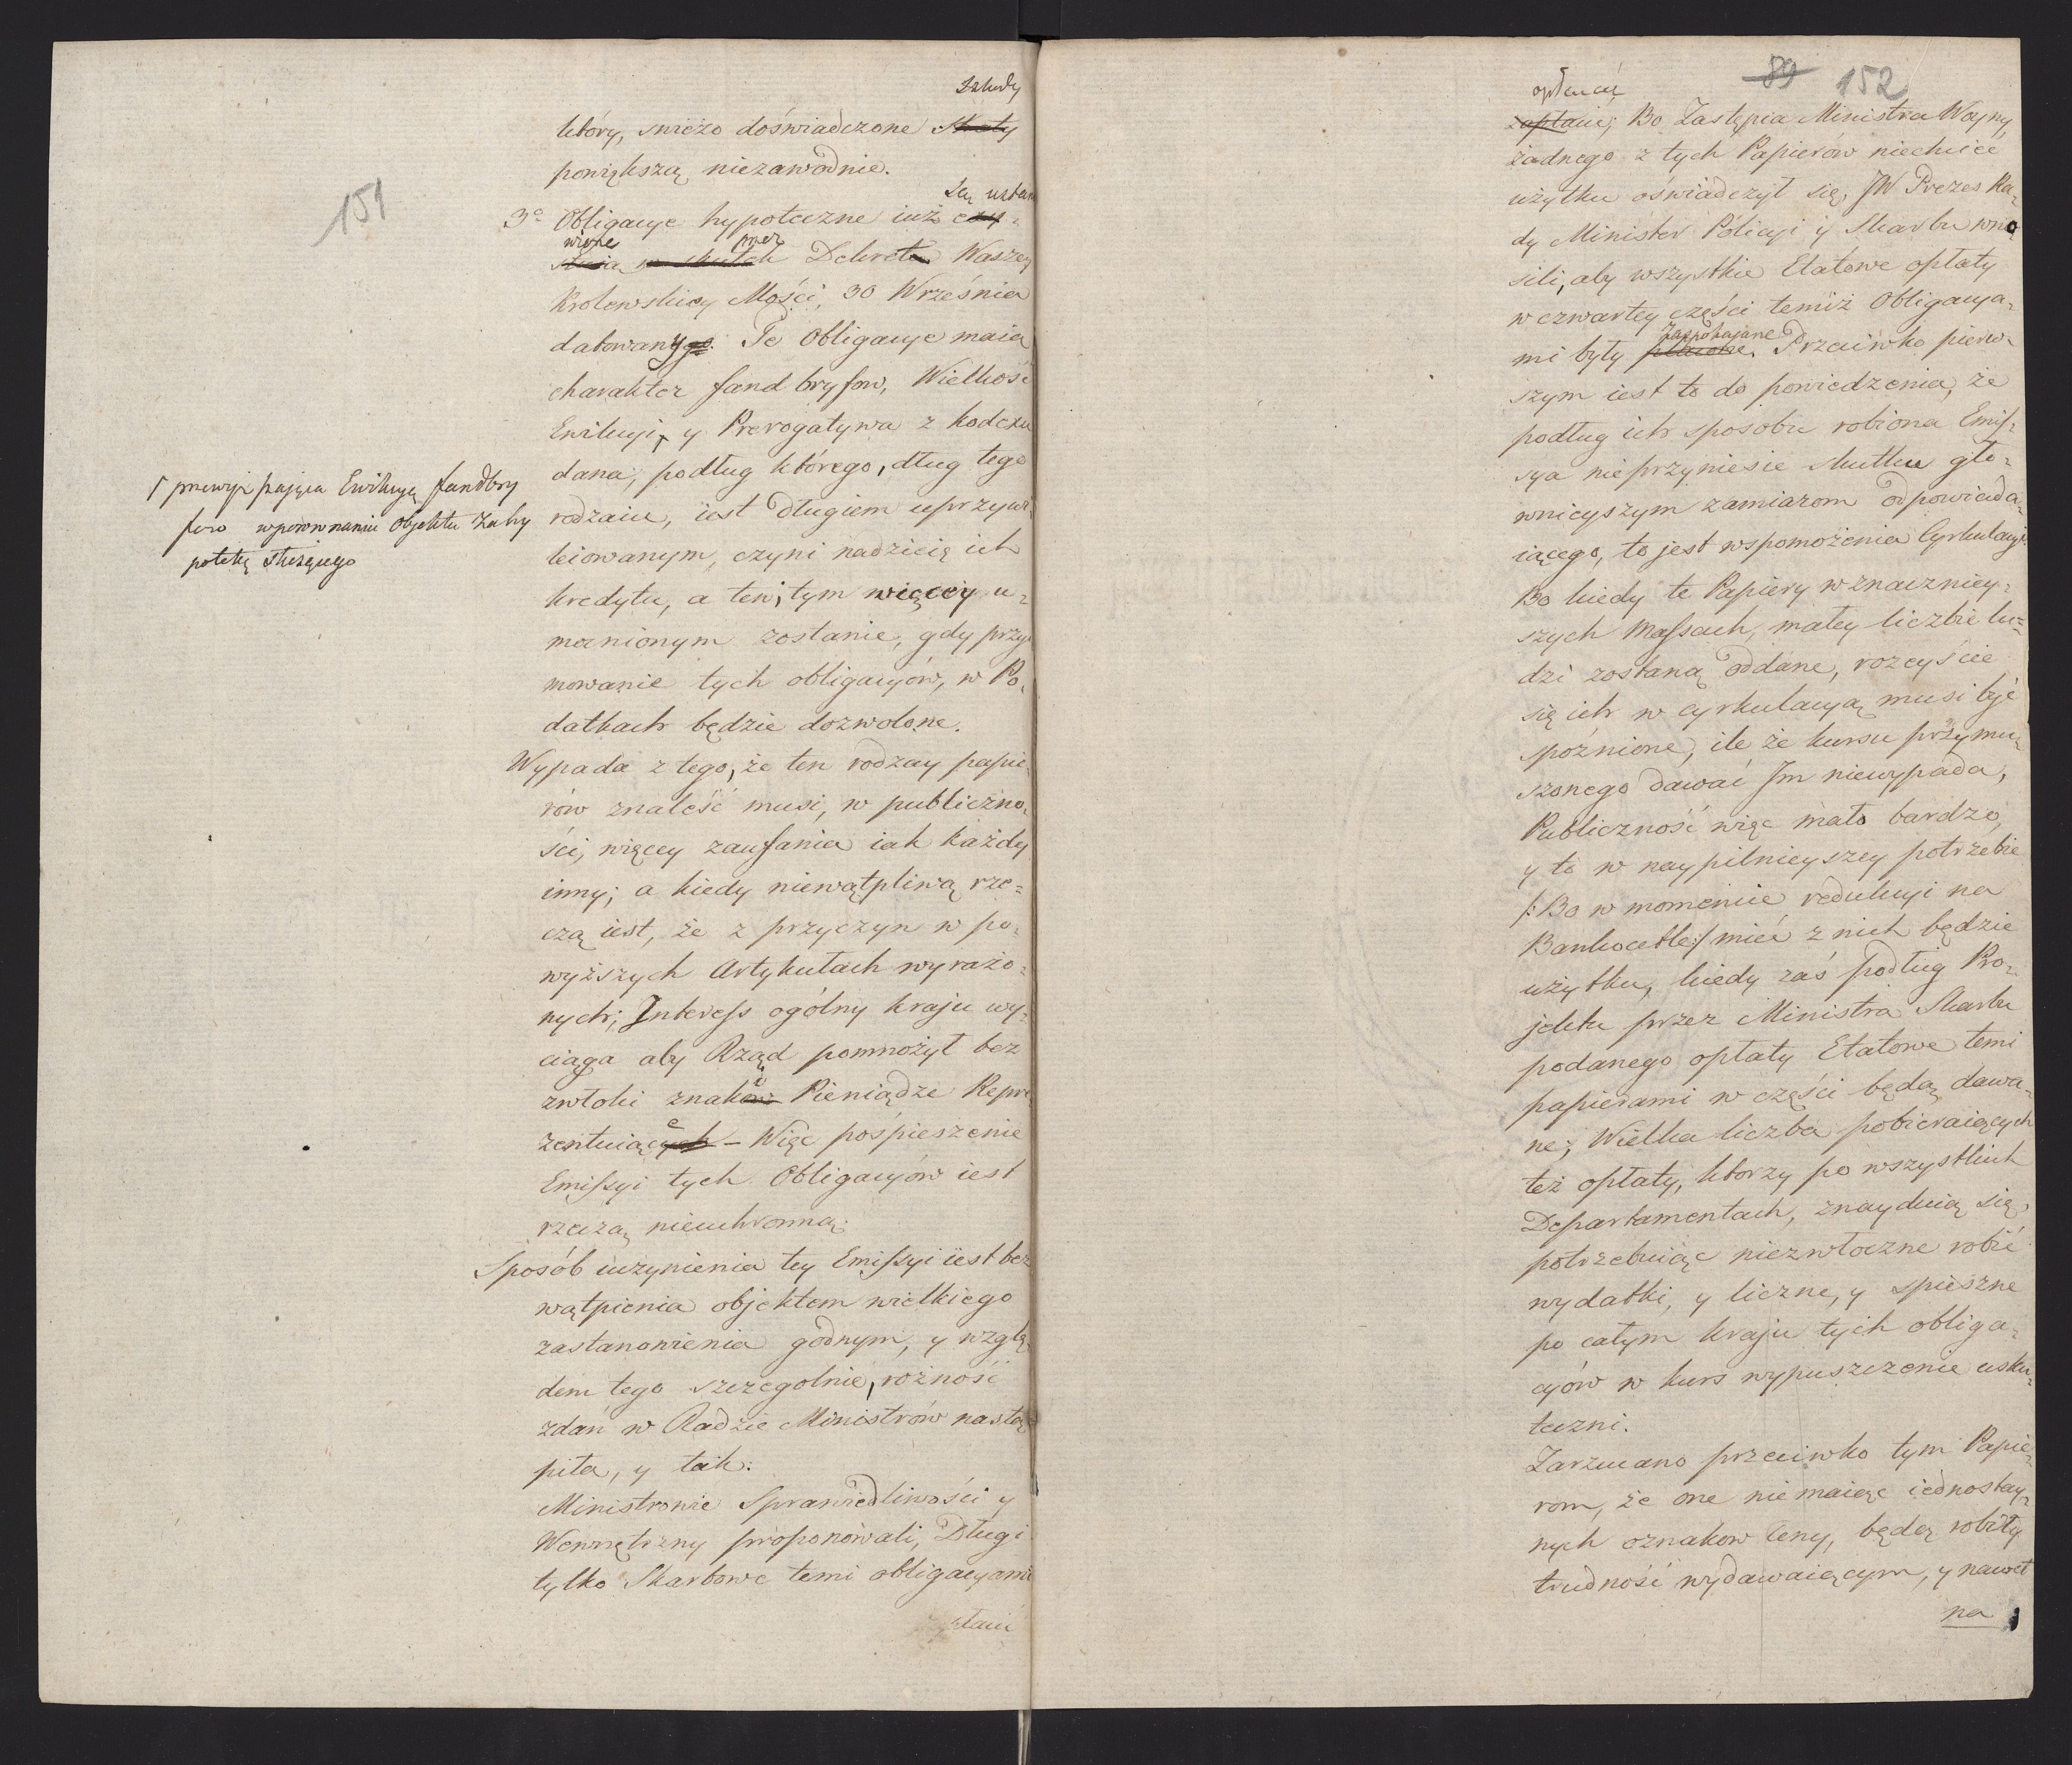 151
szkody
który, swieżo doświadczone straty
powiększą niezawodnie.
są ustan
3o Obligacye hypoteczne iuż
wione przez
w skutek Dekreta Waszey
Krolewskiey Mości, 30 Września
datowanygo. Te Obligacye maia
charakter fandbryfow, Wielkość
Ewikcyi, y Prerogatywa z kodexu
dana, podług którego, dług tego
rodzaiu, iest długiem uprzywi
leiowanym, czyni nadzieię ich
kredytu, a ten, tym więcey u-
mocnionym zostanie, gdy przy
mowanie tych obligacyów, w Po-
datkach będzie dozwolone.
przewyższająca Ewikcyą fandbry
fów w porownaniu Objektu za hy
potekę służącego
Wypada z tego, że ten rodzay papie-
rów znaleść musi, w publiczno-
ści, więcey zaufania iak każdy
inny; a kiedy niewątpliwą rze-
czą iest, że z przyczyn w po-
wyższych Artykułach wyrażo-
nych; Interess ogólny kraju wy-
ciąga aby Rząd pomnożył bez
zwłoki znaków Pieniądze Repre
zentuiących – Więc pośpieszenie
Emissyi tych Obligacyów iest
rzeczą nieuchronną.
Sposób uczynienia tey Emissyi iest bez
wątpienia objektem wielkiego
zastanowienia godnym, y wzglę
dem tego szczegolnie, rożność
zdań w Radzie Ministrów nastą
piła, y tak:
Ministrowie Sprawiedliwości y
Wewnętrzny proponowali, Długi
tylko Skarbowe temi obligacyami
płacić
89 152
opłacać
zapłacić; Bo Zastępca Ministra Woyny,
żadnego z tych Papierów niechcieć
użytku oświadczył się, JW Prezes Ra-
dy Minister Policyi y Skarbu wno
sili, aby wszystkie Etatowe opłaty
w czwartey części temiż Obligacya-
zaspokajane
mi były płacone. Przeciwko pierw-
szym iest to do powiedzenia, że
podług ich sposobu robiona Emis-
sya nieprzyniesie skutku głó-
wnieyszym zamiarom odpowiada-
iącego, to jest wspomożenia Cyrkulacyi.
Bo kiedy te Papiery w znaczniey-
szych Massach, małey liczbie lu-
dzi zostaną oddane, rozeyście
się ich w cyrkulacyą musi być
spoźnione, ile że kursu przymu-
szonego dawać Im niewypada,
Publiczność więc mało bardzo,
y to w naypilnieyszey potrzebie
/: Bo w momencie redukcyi na
Bankocetle :/ mieć z nich będzie
użytku, kiedy zaś podług Pro-
jektu przez Ministra Skarbu
podanego opłaty Etatowe temi
papierami w części będą dawa-
ne; Wielka liczba pobieraiących
też opłaty, ktorzy po wszystkich
Departamentach, znayduią się,
potrzebuiąc niezwłoczne robić
wydatki, y liczne, y spieszne
po całym kraju tych obliga-
cyów w kurs wypuszczenie usku-
teczni.
Zarzucano przeciwko tym Papie
rom, że one nie maiąc iednostay-
nych oznakow Ceny, będą robiły
trudność wydawaiącym, y nawet
na